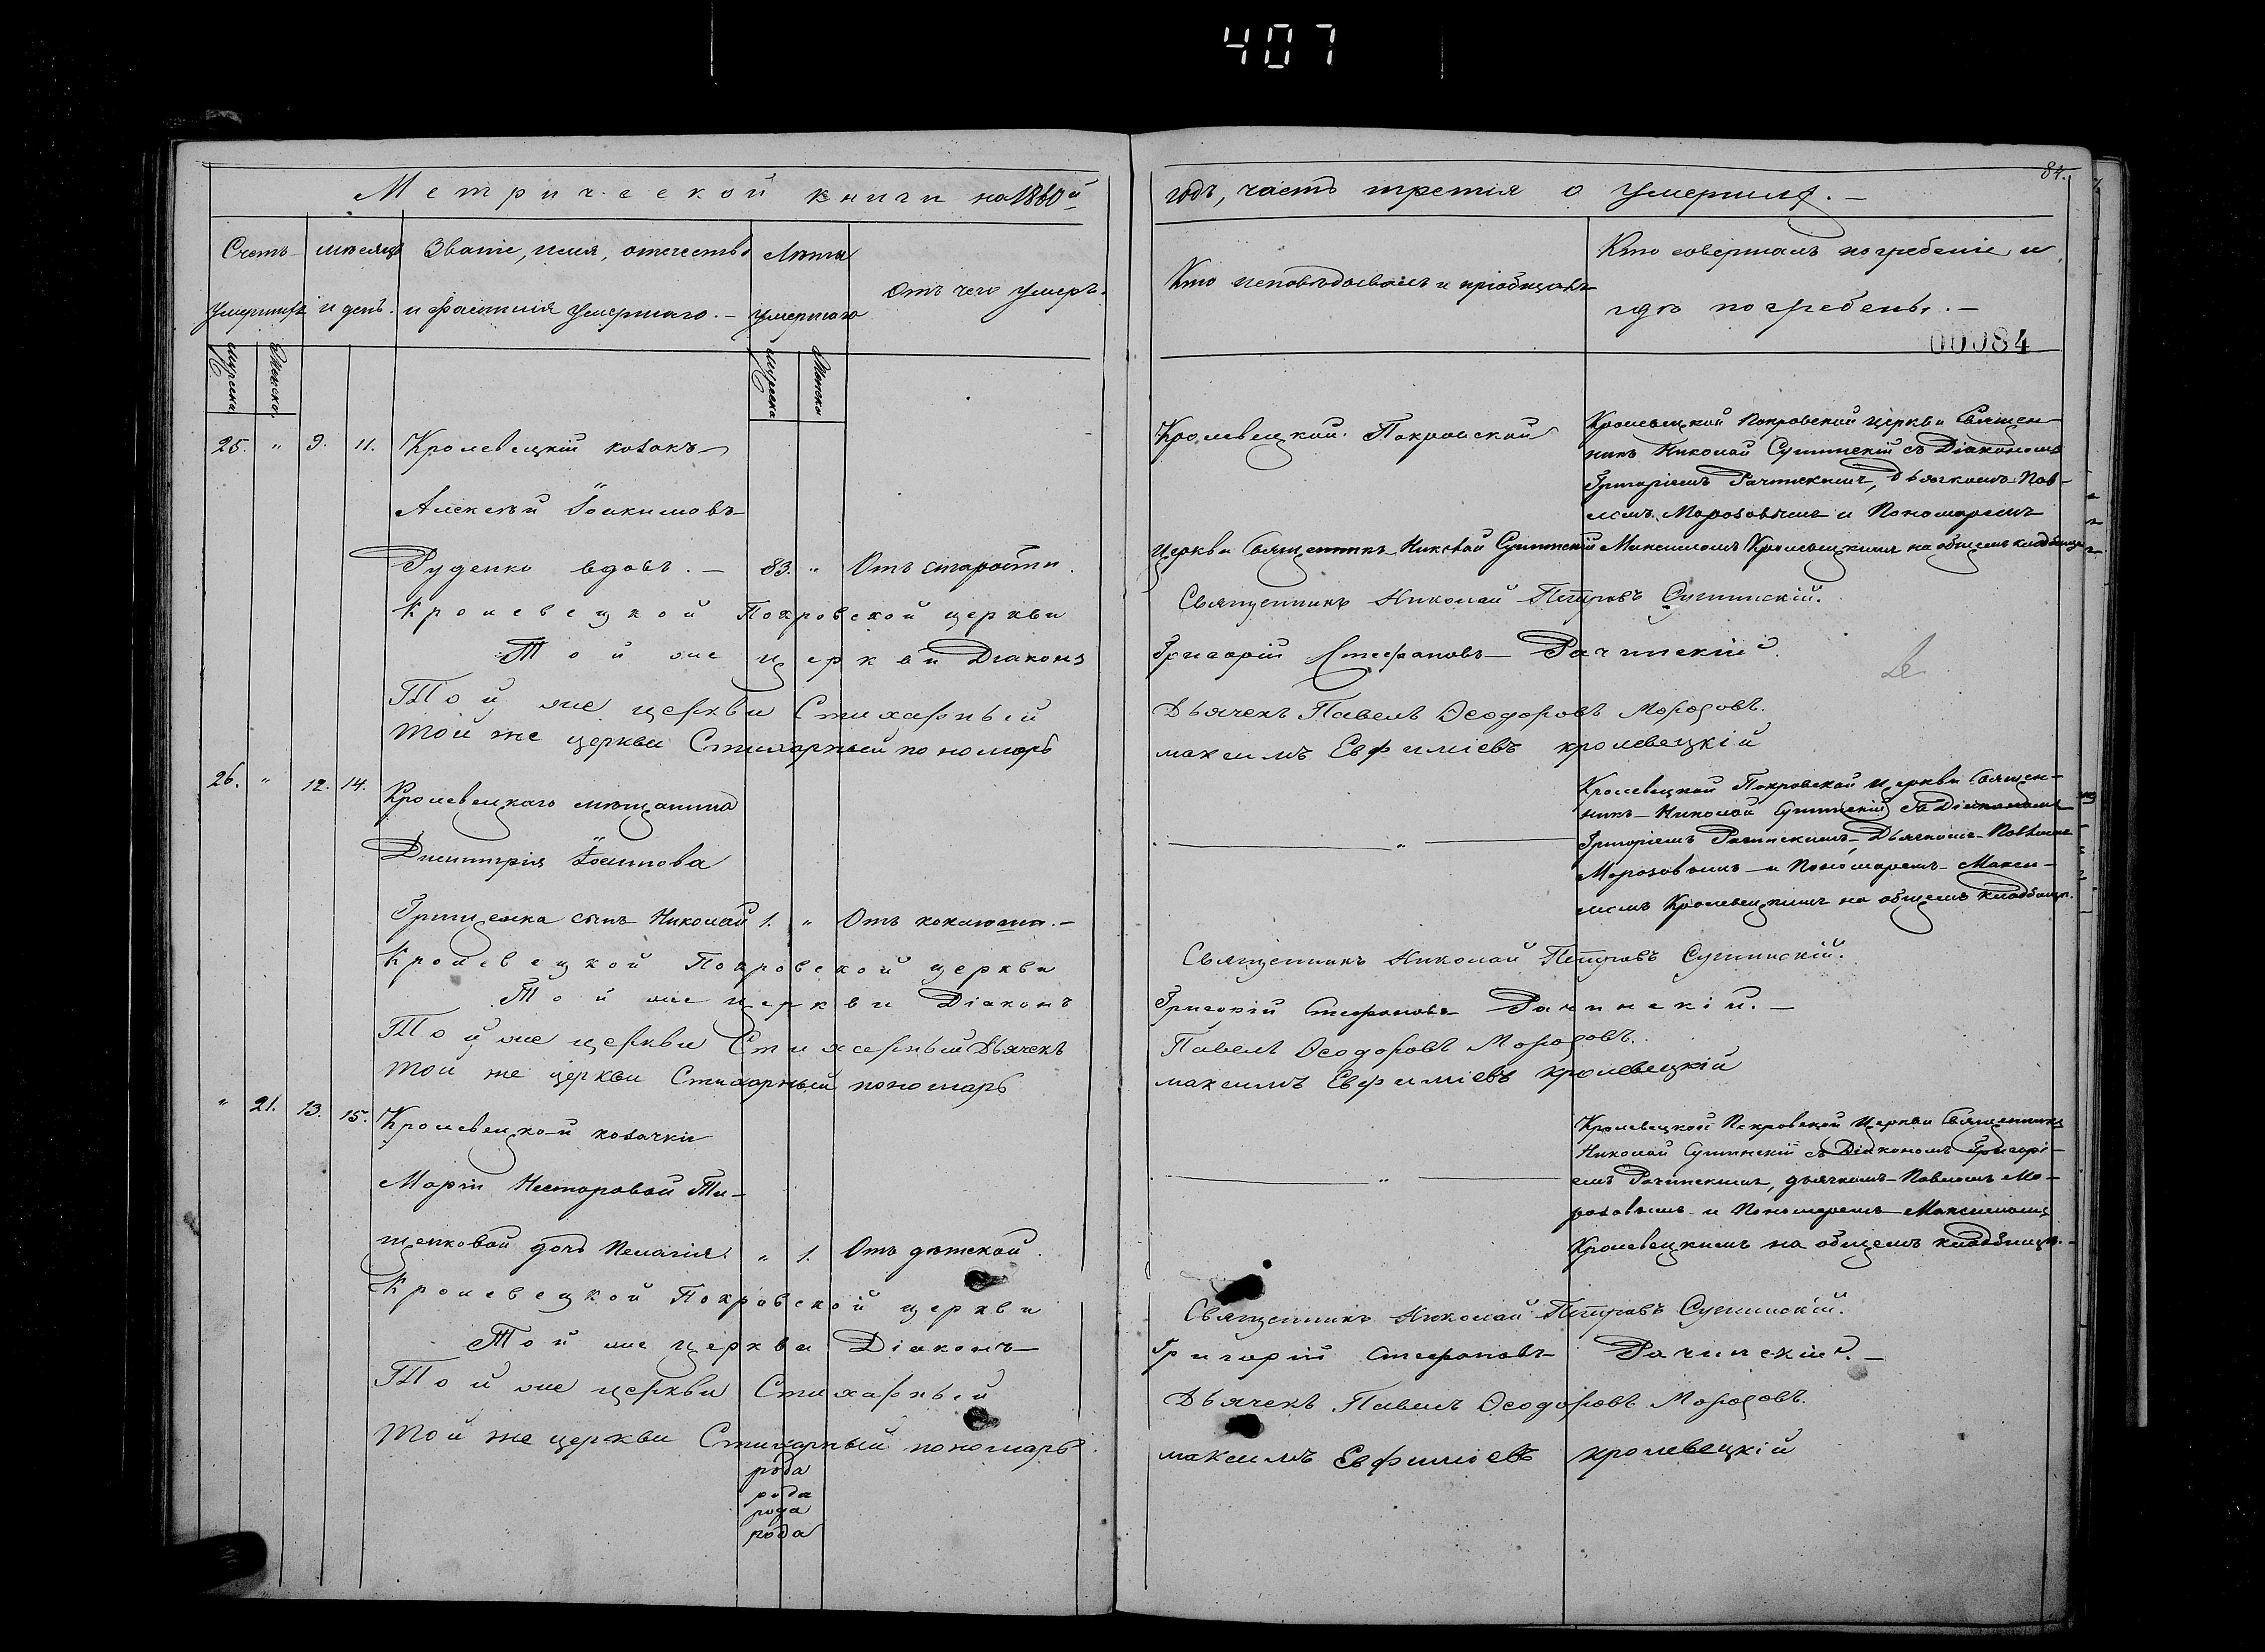 407
84.
Метрической книги на 1860й
годъ, часть третія о умершихъ. —
Счетъ умершихъ
мѣсяцъ и день.
Званіе, имя, отчество и фамилія умершаго. —
Лѣта умершаго
Отъ чего умеръ.
Кто исповѣдывалъ и пріобщалъ
Кто совершалъ погребеніе и
гдѣ погребены. —
00084
мужска
женска
мужеска
женска
25. „ 9. 11. Кролевецкій козакъ
Алексѣй Іоакимовъ
Руденко вдовъ. — 83. „ Отъ старости.
Кролевецкой Покровской
Церкви Священникъ Николай Сушинскій
Кролевецкой Покровской церкви Священ-
никъ Николай Сушинскій съ Діакономъ
Григоріемъ Рачинскимъ, Дьячкомъ Пав-
ломъ Морозовымъ и Пономаремъ
Максимомъ Кролевецкимъ на общемъ кладбищѣ
Кролевецкой Покровской церкви Священникъ Николай Петровъ Сушинскій.
Той же церкви Діаконъ Григорій Стефановъ Рачинскій.
Той же церкви Стихарный Дьячекъ Павелъ Ѳеодоровъ Морозовъ.
Той же церкви Стихарный пономарь максимъ Евфиміевъ кролевецкій
26. „ 12. 14. Кролевецкаго мѣщанина
Димитрія Іосипова
Грищенка сынъ Николай 1. „ Отъ коклюша. —
„
Кролевецкой Покровской церкви Священ-
никъ Николай Сушинскій съ Діакономъ
Григоріемъ Рачинскимъ, Дьячкомъ Павломъ
Морозовымъ и Пономаремъ Макси-
момъ Кролевецкимъ на общемъ кладбищѣ.
Кролевецкой Покровской церкви Священникъ Николай Петровъ Сушинскій.
Той же церкви Діаконъ Григорій Стефановъ Рачинскій. —
Той же церкви Стихарный Дьячекъ Павелъ Ѳеодоровъ Морозовъ.
Той же церкви Стихарный пономарь максимъ Евфиміевъ кролевецкій
„ 21. 13. 15. Кролевецкой козачки
Маріи Несторовой Ти-
щенковой дочь Пелагія. „ 1. Отъ дѣтской.
„
Кролевецкой Покровской Церкви Священникъ
Николай Сушинскій съ Діакономъ Григорі-
емъ Рачинскимъ, дьячкомъ Павломъ Мо-
розовымъ и Пономаремъ Максимомъ
Кролевецкимъ на общемъ кладбищѣ. —
Кролевецкой Покровской церкви Священникъ Николай Петровъ Сушинскій.
Той же церкви Діаконъ Григорій Стефановъ Рачинскій. —
Той же церкви Стихарный Дьячекъ Павелъ Ѳеодоровъ Морозовъ.
Той же церкви Стихарный пономарь. максимъ Евфиміевъ кролевецкій
рода
рода
рода
рода